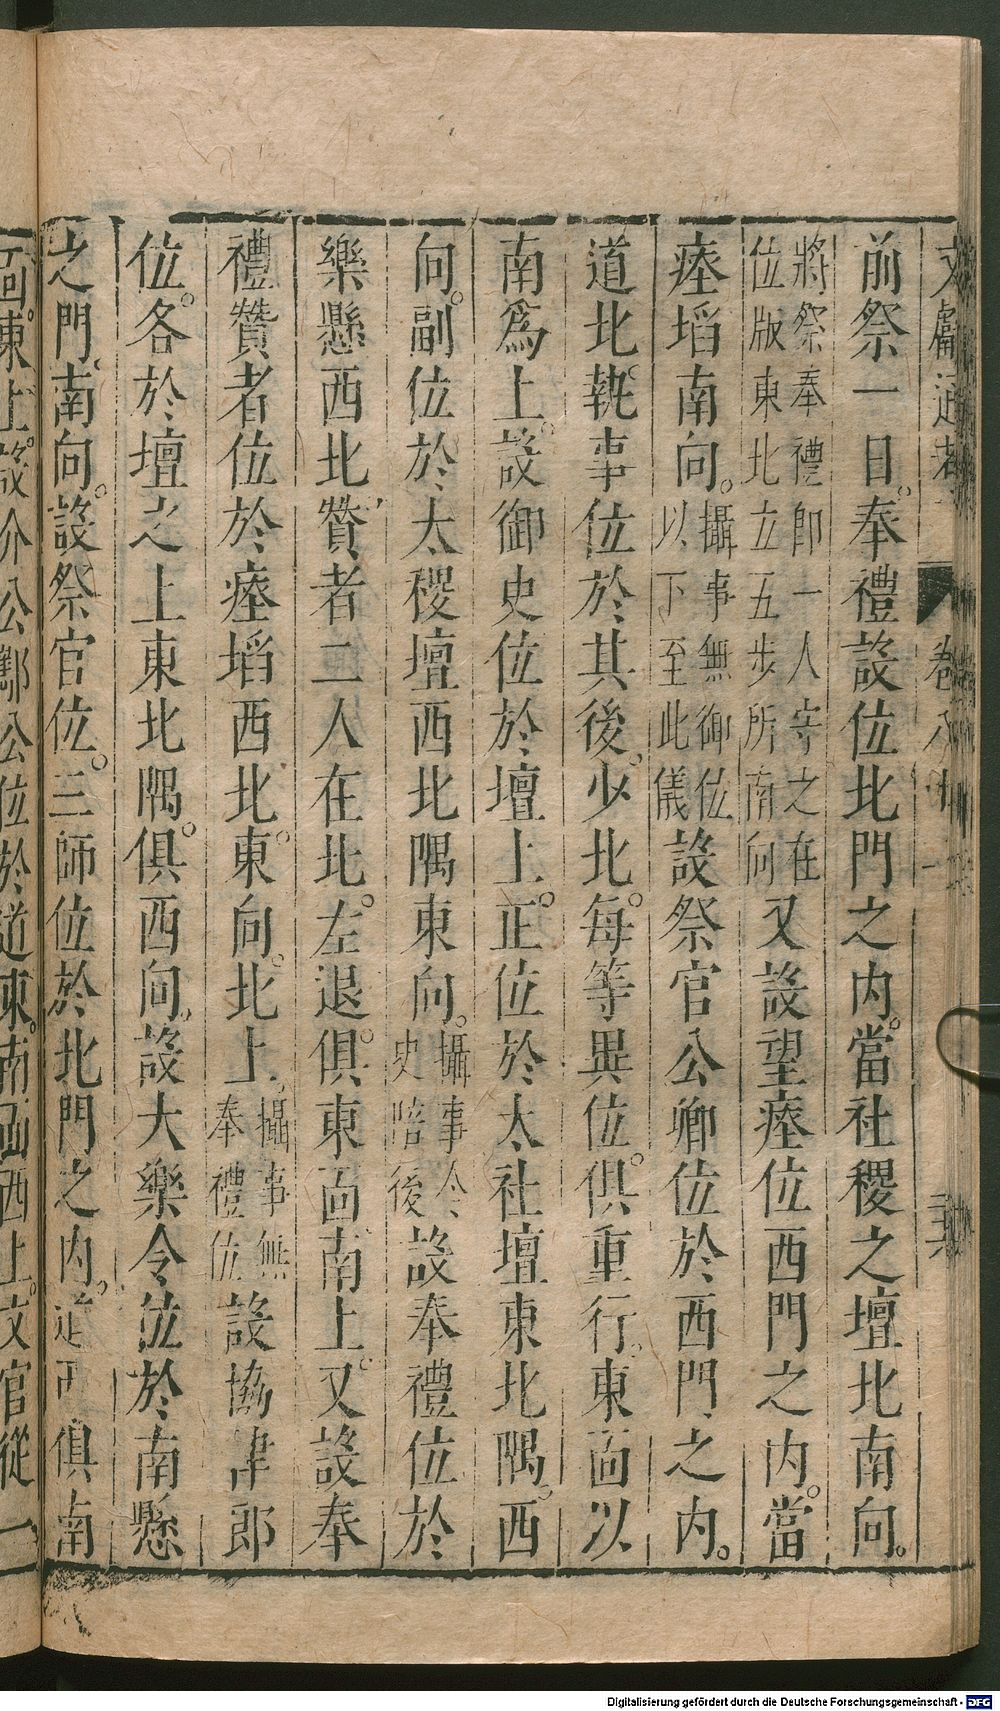 文獻通考 卷八十二 三六
前祭一日。奉禮設位北門之内。當社稷之壇北南向。
將祭奉禮郎一人守之在位版東北立五步所南向又設望瘞位西門之内。當
瘞埳南向。攝事無御位以下至此儀設祭官公卿位於西門之内。
道北。執事位於其後。少北。每等異位。俱重行。東面以
南爲上。設御史位於壇上。正位於太社壇東北隅。西
向。副位於太稷壇西北隅東向。攝事令史陪後設奉禮位於
樂懸西北贊者二人在北。左退。俱東面南上。又設奉
禮贊者位於瘞埳西北。東向。北上。攝事無奉禮位設協律郎
位。各於壇之上東北隅。俱西向。設大樂令位於南懸
之門。南向。設祭官位。三師位於北門之内。道西俱南
面。東上。設介公酅公位於道東。南面西上。文官從一
Digitalisierung gefördert durch die Deutsche Forschungsgemeinschaft - DFG